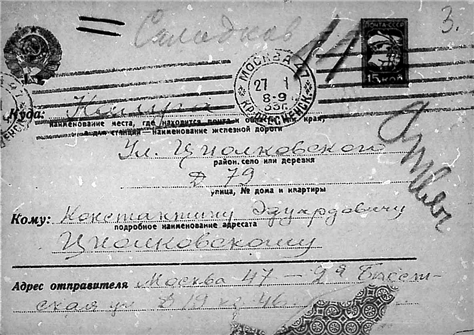 Саладков
3.
ПОЧТА СССР
15 КОП
МОСКВА 47
27 1
8-9
35г.
КРАСНОПРЕСНЕНСК
Куда: Калуга
наименование места, где находится почта
а для станций наименование железной дороги
Ул. Циолковского
район, село или деревня
Д 79
улица, № дома и квартиры
Ответ
Кому: Константину Эдуардовичу
подробное наименование адресата
Циолковскому
Адрес отправителя Москва 47 — 2я
ская ул Д 19 кв 46